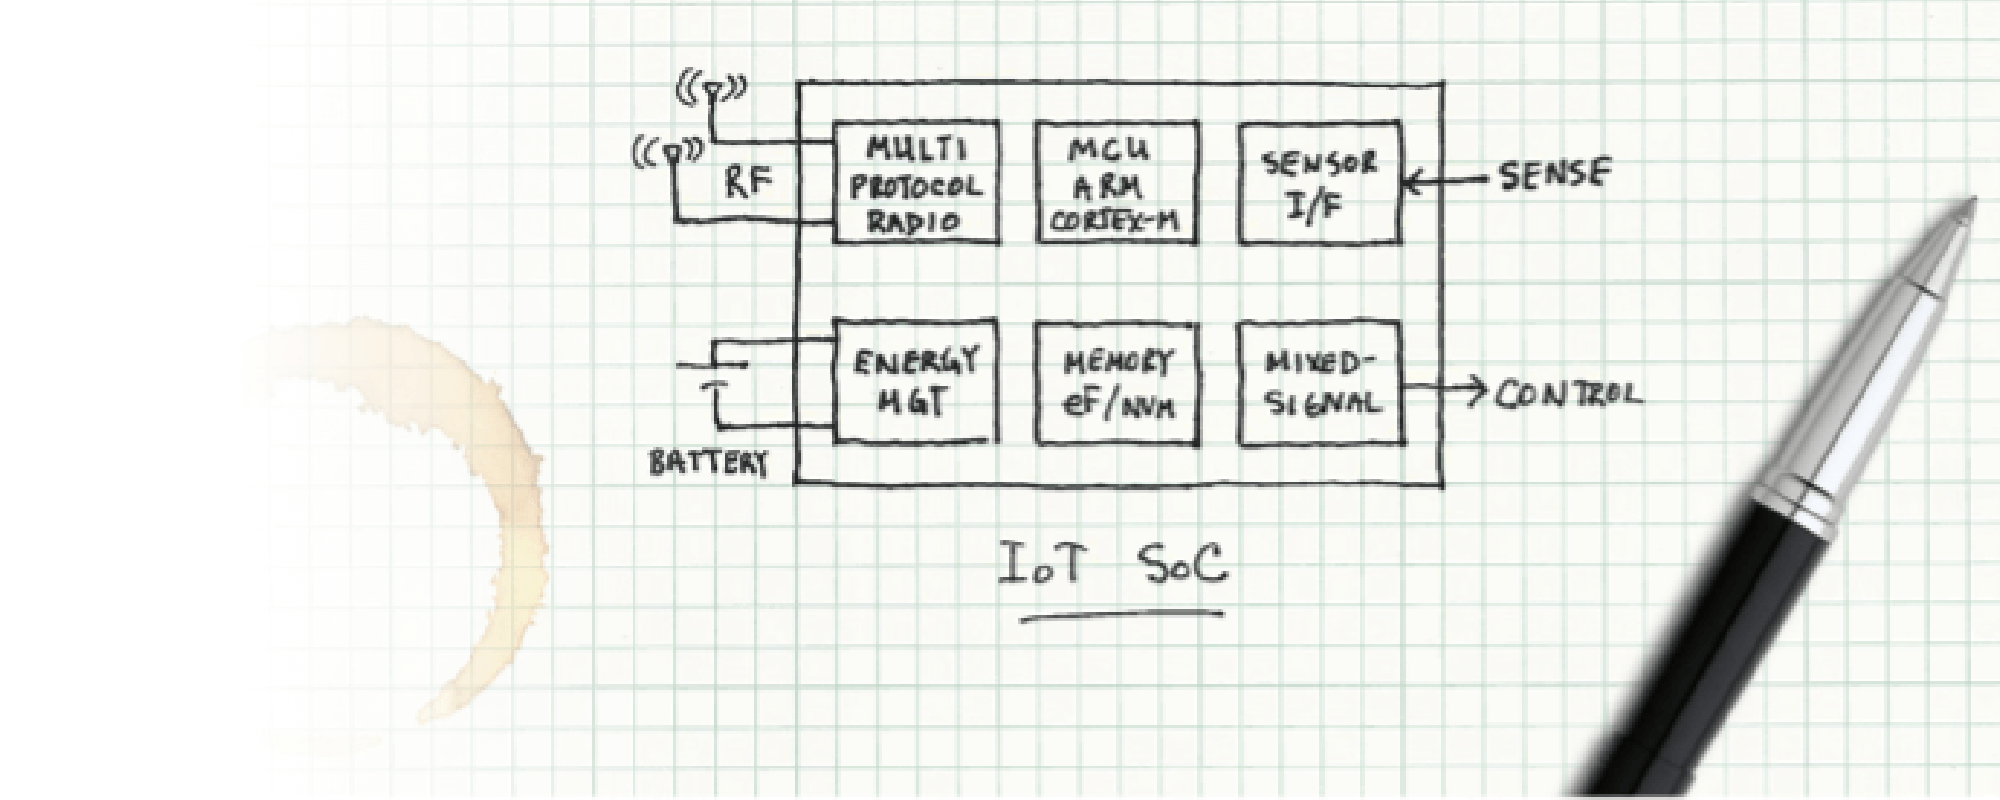 RF
MULTI
PROTOCOL
RADIO
MCU
ARM
CORTEX-M
SENSOR
I/F
SENSE
ENERGY
MGT
MEMORY
eF/NVM
MIXED-
SIGNAL
CONTROL
BATTERY
IoT SoC